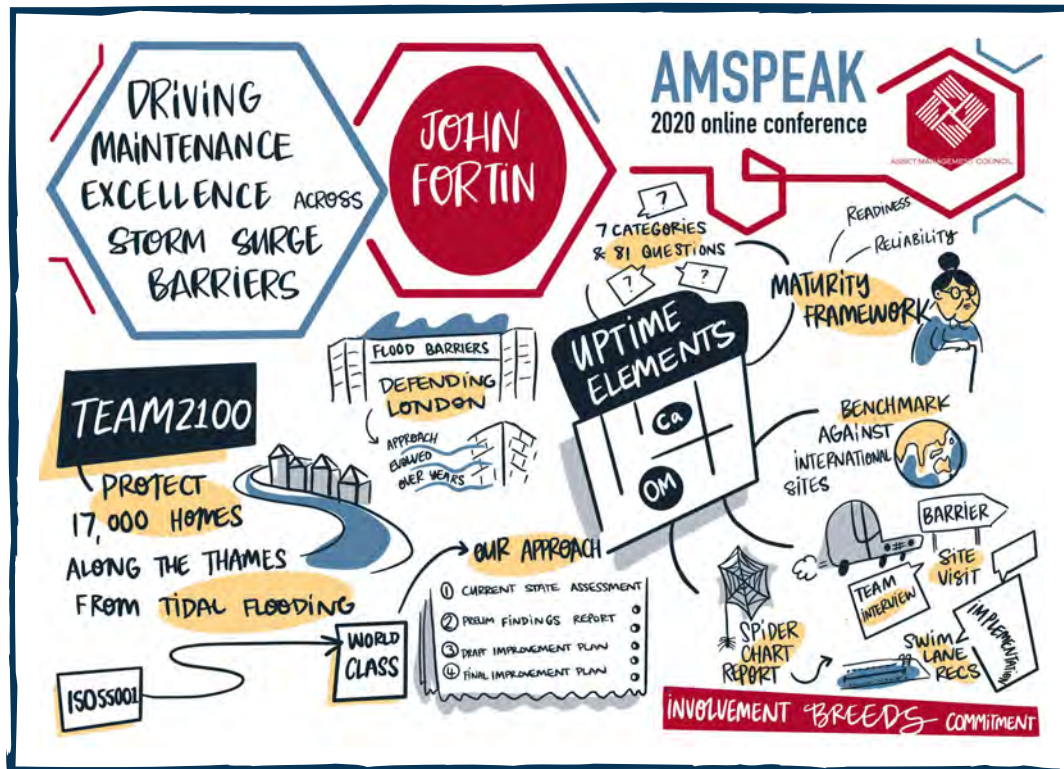 DRIVING
MAINTENANCE
EXCELLENCE ACROSS
STORM SURGE
BARRIERS
JOHN
FORTIN
AMSPEAK
2020 online conference
ASSET MANAGEMENT COUNCIL
?
7 CATEGORIES
& 81 QUESTIONS
?
?
READINESS
RELIABILITY
MATURITY
FRAMEWORK
UPTIME
ELEMENTS
Ca
OM
FLOOD BARRIERS
DEFENDING
LONDON
APPROACH
EVOLVED
OVER YEARS
TEAM2100
PROTECT
17,000 HOMES
ALONG THE THAMES
FROM TIDAL FLOODING
ISO55001
WORLD
CLASS
OUR APPROACH
1 CURRENT STATE ASSESSMENT
2 PRELIM FINDINGS REPORT
3 DRAFT IMPROVEMENT PLAN
4 FINAL IMPROVEMENT PLAN
BENCHMARK
AGAINST
INTERNATIONAL
SITES
BARRIER
SITE
VISIT
TEAM
INTERVIEW
SPIDER
CHART
REPORT
SWIM
LANE
RECS
IMPLEMENTATION
INVOLVEMENT BREEDS COMMITMENT